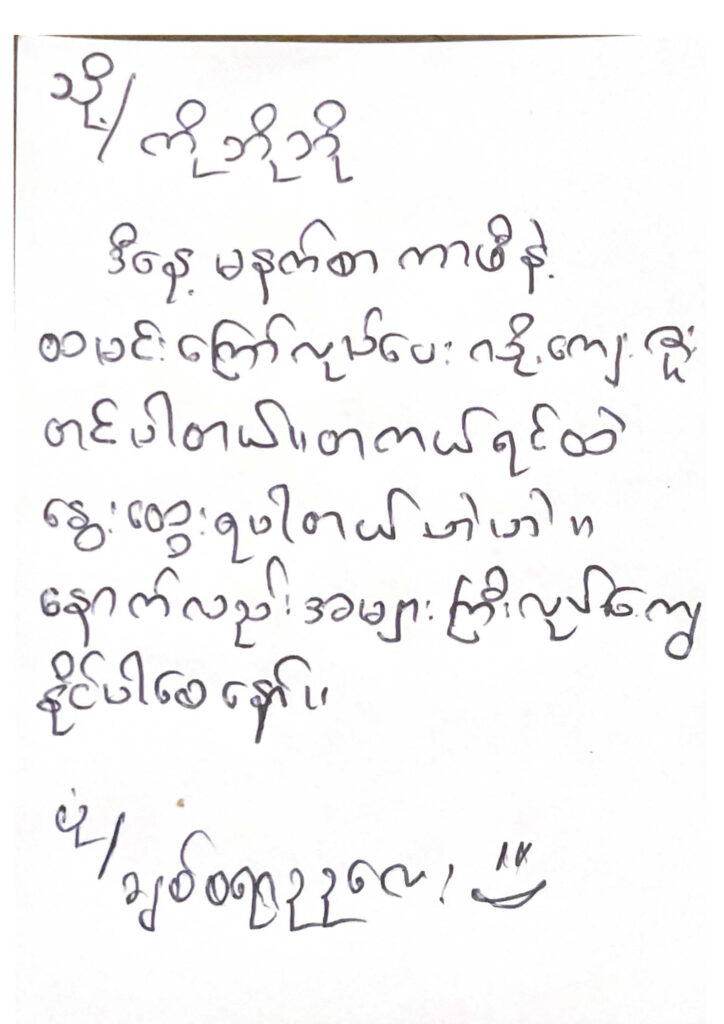 သို့/
ကိုဘိုဘို
ဒီနေ့ မနက်စာ ကာဖီနဲ့
ထမင်းကြော်လုပ်ပေးလို့ကျေးဇူး
တင်ပါတယ်။ တကယ်ရင်ထဲ
နွေးထွေးရပါတယ် ဟာဟာ။
နောက်လည်း အများကြီးလုပ်ကျွေး
နိုင်ပါစေနော်။
ပုံ/
ချစ်စရာဥဥလေး